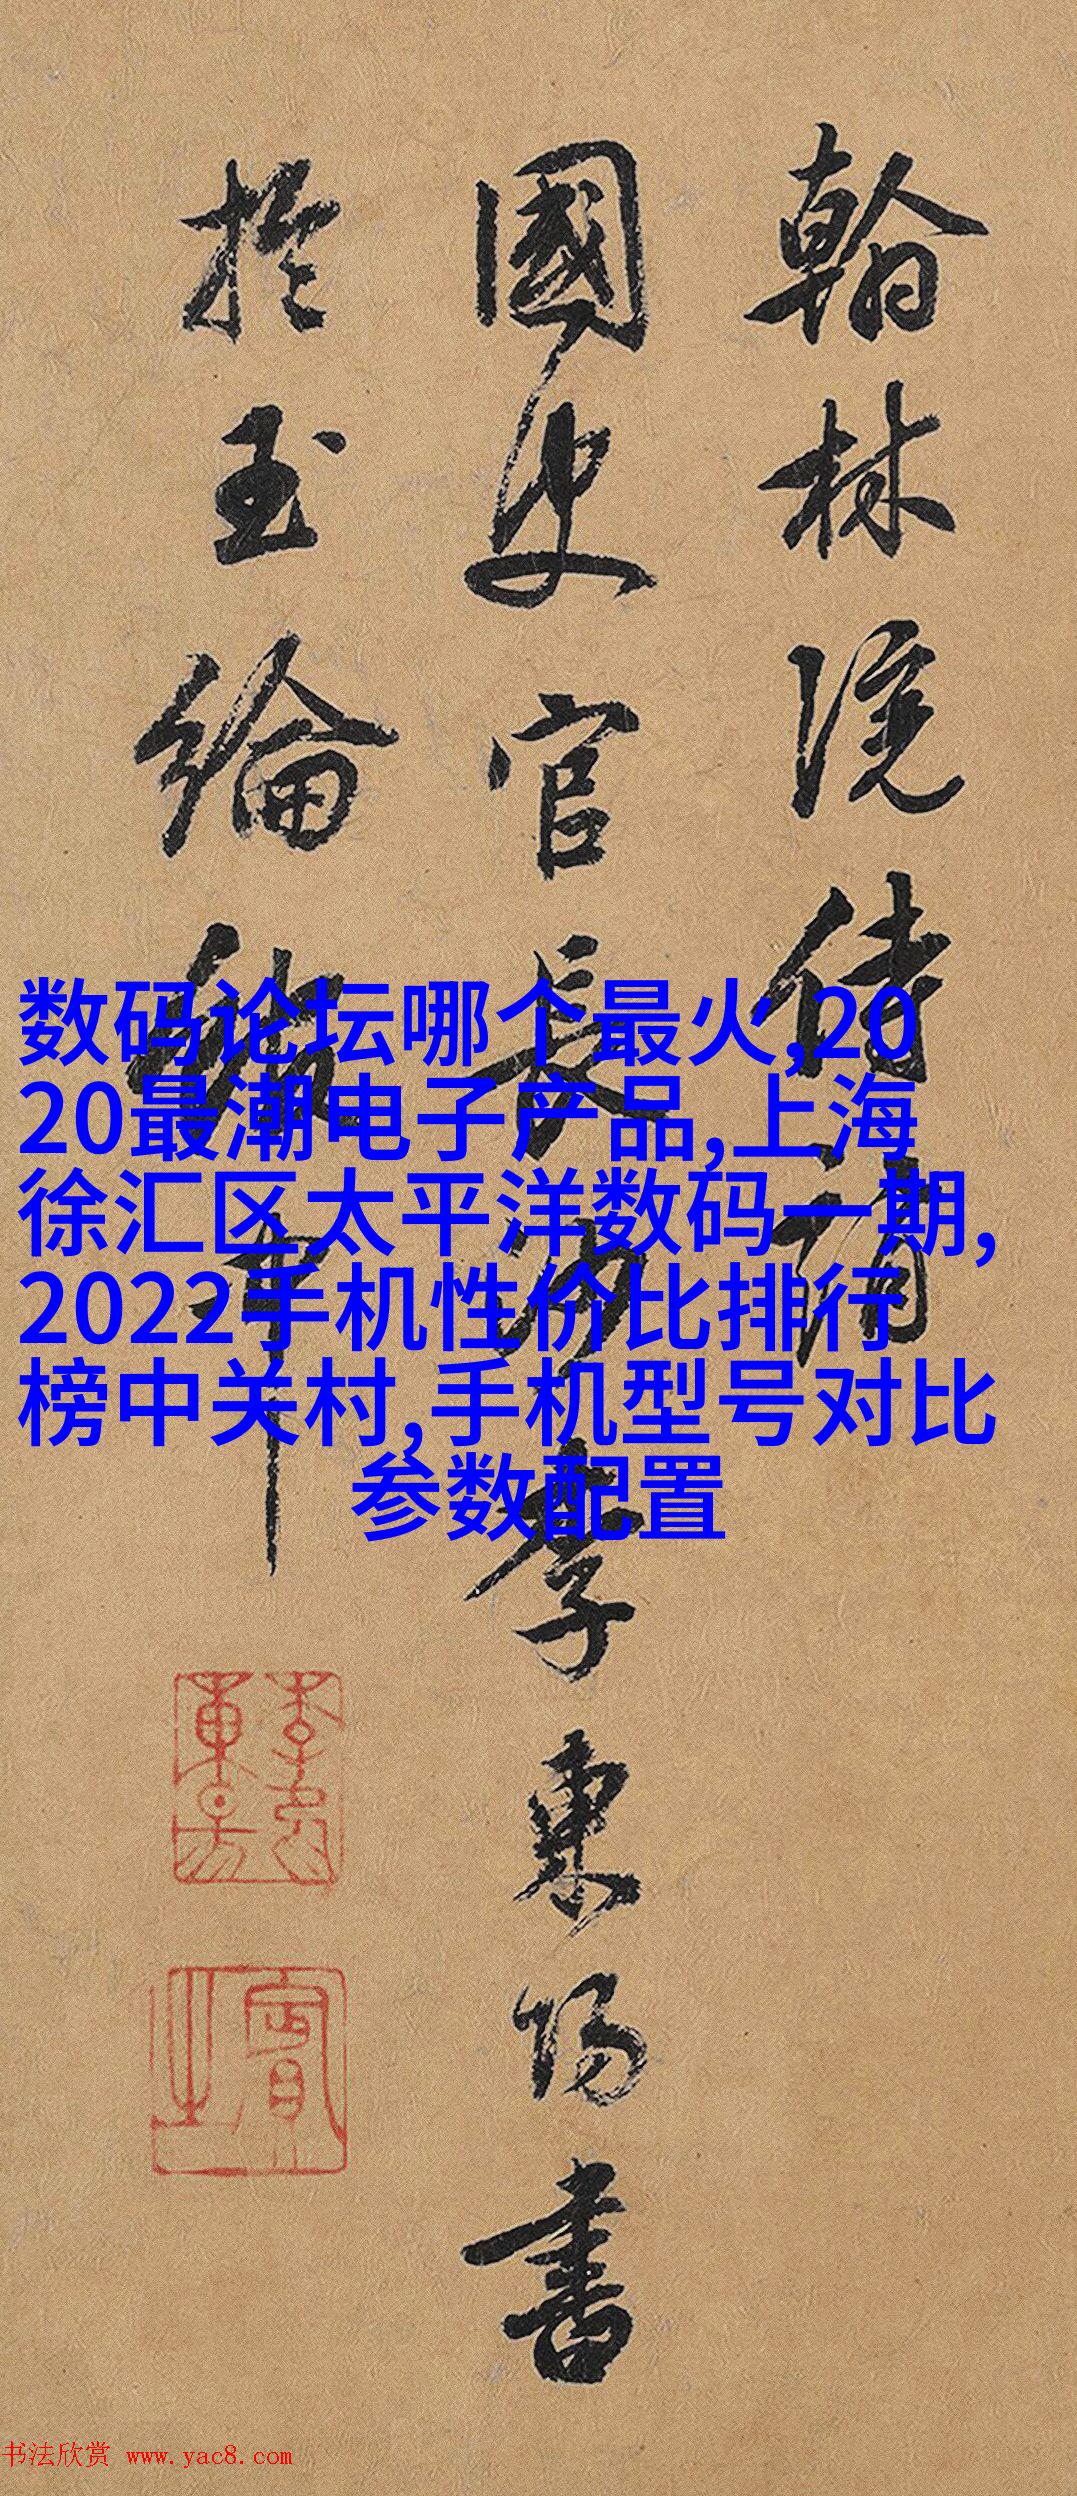 翰林院侍讀
國史官長沙李東陽書
於玉綸軒中
数码论坛哪个最火,20
20最潮电子产品,上海
徐汇区太平洋数码一期,
2022手机性价比排行
榜中关村,手机型号对比
参数配置
书法欣赏 www.yac8.com